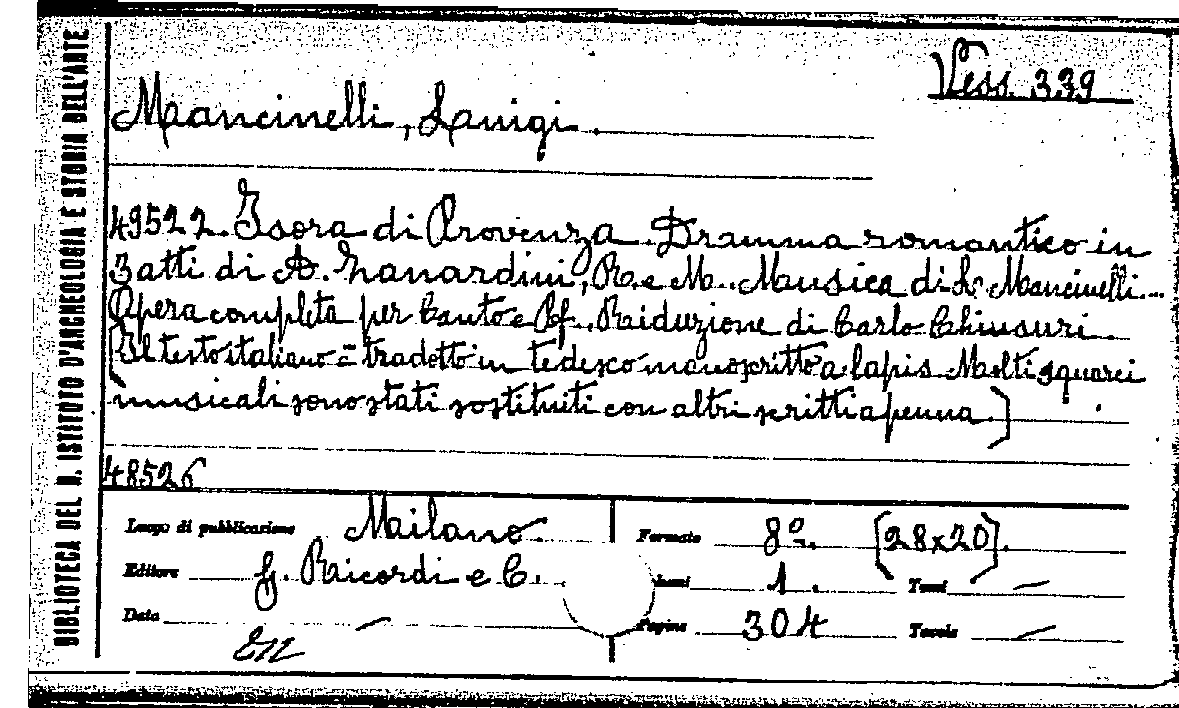 BIBLIOTECA DEL R. ISTITUTO D'ARCHEOLOGIA E STORIA DELL'ARTE
Vess. 339
Mancinelli, Luigi.
49522. Isora di Provenza. Dramma romantico in
3 atti di A. Zanardini, R. e M.. Musica di L. Mancinelli...
Opera completa per Canto e Pf., Riduzione di Carlo Chiusuri.
[Il testo italiano è tradotto in tedesco manoscritto a lapis. Molti squarci
musicali sono stati sostituiti con altri scritti a penna.]
48526
Luogo di pubblicazione Milano.
Editore G. Ricordi e C.
Data —
Formato 8º. [28x20].
1. Tomi —
Pagine 304 Tavole —